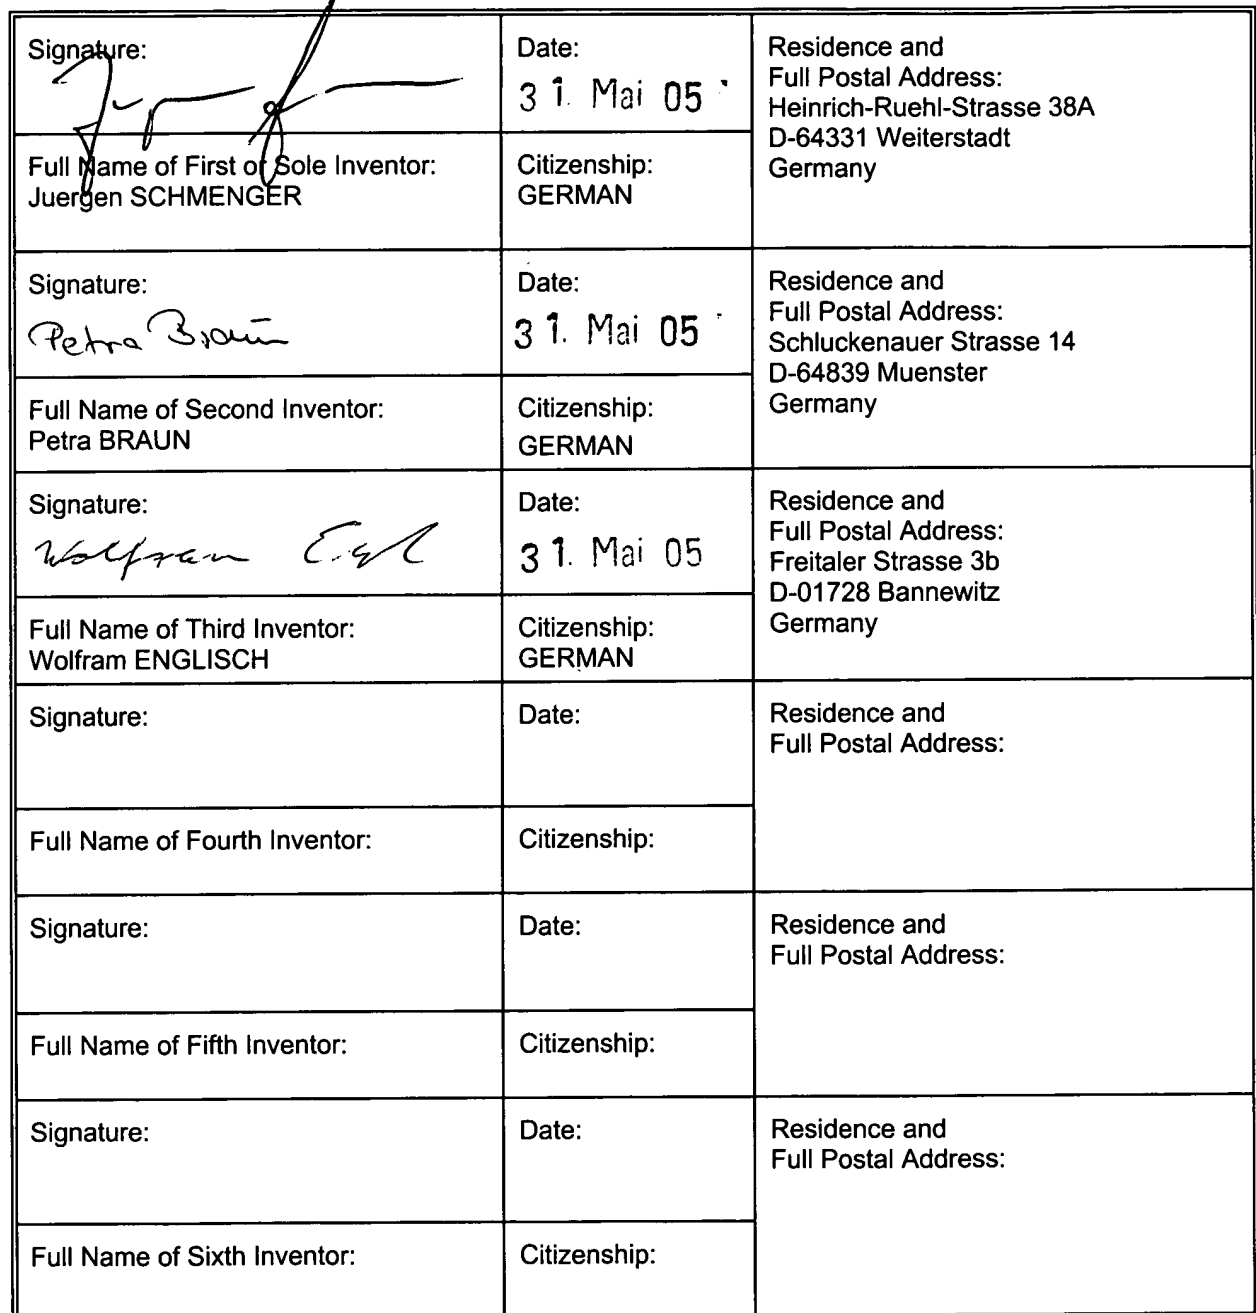 Signature:
Date:
31. Mai 05
Residence and
Full Postal Address:
Heinrich-Ruehl-Strasse 38A
D-64331 Weiterstadt
Germany
Full Name of First or Sole Inventor:
Juergen SCHMENGER
Citizenship:
GERMAN
Signature:
Petra Braun
Date:
31. Mai 05
Residence and
Full Postal Address:
Schluckenauer Strasse 14
D-64839 Muenster
Germany
Full Name of Second Inventor:
Petra BRAUN
Citizenship:
GERMAN
Signature:
Wolfram
Date:
31. Mai 05
Residence and
Full Postal Address:
Freitaler Strasse 3b
D-01728 Bannewitz
Germany
Full Name of Third Inventor:
Wolfram ENGLISCH
Citizenship:
GERMAN
Signature:
Date:
Residence and
Full Postal Address:
Full Name of Fourth Inventor:
Citizenship:
Signature:
Date:
Residence and
Full Postal Address:
Full Name of Fifth Inventor:
Citizenship:
Signature:
Date:
Residence and
Full Postal Address:
Full Name of Sixth Inventor:
Citizenship: